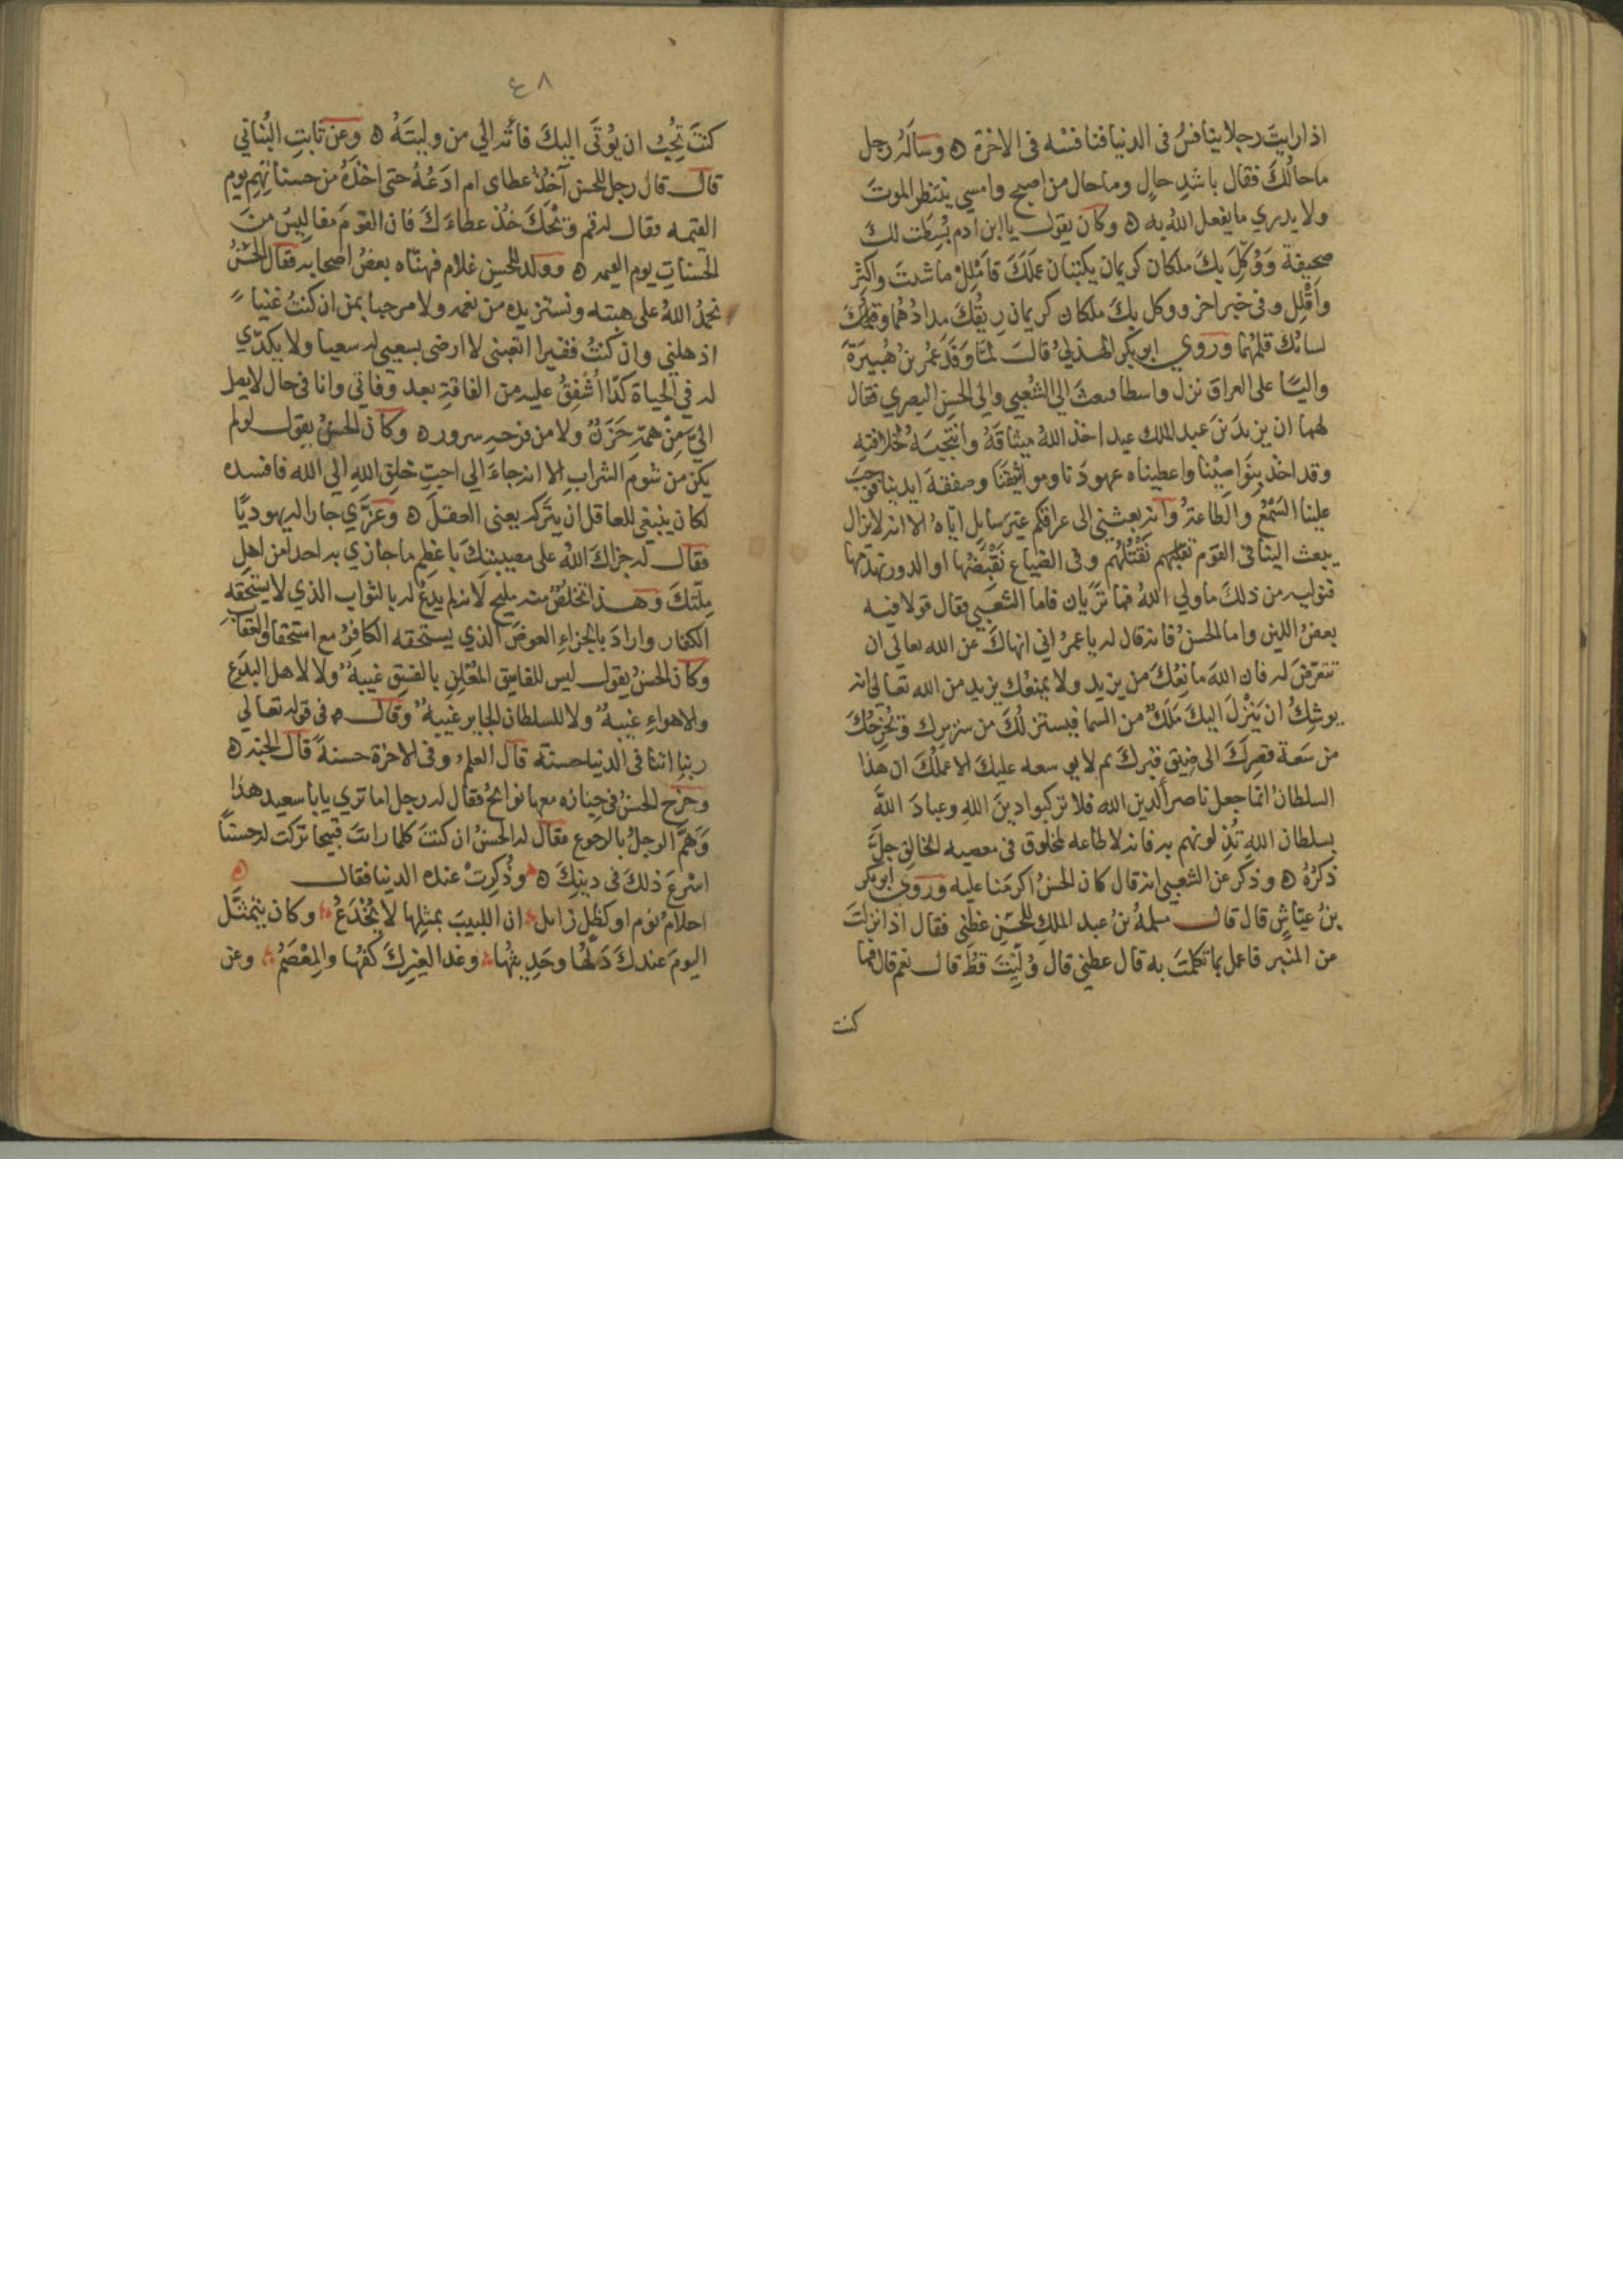 اذا رايت رجلا ينافسُ فى الدنيا فنافسْه فى الاخرة ه وسألَهُ رجل
ما حالُكَ فقال باشدِ حالٍ وما حال من اصبح وامسي ينتظر الموتَ
ولا يدري ما يفعل اللهُ به ه وكان يقول يا ابن ادم بُسِطت لك
صحيفة وَوُكِّلَ بكَ ملكان كريمان يكتبان عملَكَ فاَمْلِلْ ما شئتَ واكثِر
واَقْلِل وفى خبر اخر ووكل بكَ ملكان كريمان رِيقُكَ مدادُهُما
لسانُكَ قلمُهُما ورَوي ابو بكر الهذليُ قالَ لمّا وَفَدَ عمرُ بنُ هُبيرَةَ
واليًا على العراق نزل واسطا فبعث الى الشعْبي والى الحسن البصري فقال
لهما ان يزيدَ بنَ عبد الملك عبد اخذ اللهُ ميثاقَهُ وانتجبَهُ لخلافتِهِ
وقد اخذ بِنَواصِيْنا واعطيناه عهودَنا ومواثيقَنا وصفقةَ ايدينا فوجبَ
علينا السَمْعُ والطاعةُ وانه بعثني الى عراقكم غيرَ سايلٍ ايّاهُ الا انه لا يزال
يبعث الينا فى القوم نقتلُهُم وفى الضياع نَقْبِضُها او الدور نهدمُها
فنوليه من ذلك ما ولي اللهُ فما تَرَيان فاما الشعْبي فقال قولا فيه
بعضُ اللين واما الحسنُ فانه قال له يا عمرُ اني انهاكَ عن الله تعالى ان
تتعرّضَ له فان اللهَ مانِعُكَ من يزيد ولا يمنعُك يزيد من الله تعالى انه
يوشِكُ ان يَنْزِلَ اليكَ مَلَكٌ من السما فيستنزلُكَ من سريرك ويُخرِجُكَ
من سَعَة قصرِكَ الى ضيقِ قبرِكَ ثم لا يوسعه عليكَ الا عملُكَ ان هذا
السلطانُ انما جعل ناصراً لدين الله فلا تركبوا دينَ اللهِ وعبادَ اللهَ
بسلطان اللهِ تُذِلونهم به فانه لا طاعه لمخلوق فى معصيه الخالق جلَّ
ذكرُهُ ه وذكر عن الشعبي انه قال كان الحسنُ اكرمَنا عليه ورَوَي ابو بكر
بنُ عيّاشٍ قال قال مسلمهُ بنُ عبد الملكِ للحسَنِ عظني فقال اذا نزلتَ
عن المنبر فاعمل بما تكلمتَ به قال عظني قال وُلِّيْتَ قطُ قال نعم قال فما
كنت
٤٨
كنتَ تُحِبُ ان يُؤتَى اليكَ فأته الى من وليتَهُ ه وعن ثابتِ البُناني
قال قال رجل للحسن آخُذُ عطاى ام ادَعُهُ حتى اخذَهُ من حسناتِهِم يوم
القيمه فقال له قم ويْحَكَ خُذ عطاءَكَ فان القومَ مفاليسُ منَ
الحسناتِ يوم القيمه ه وولد للحسنِ غلام فهنّاه بعضُ اصحابه فقال الحسنُ
نحمدُ اللهَ على هبته ونستزيده من نعمه ولا مرحبا بمن ان كنتُ غنيا
اذهلني وان كنتُ فقيرا اتعبني لا ارضى بسعيي له سعيا ولا بكدّي
له في الحياة كدًّا اُشْفِقُ عليه من الفاقةِ بعد وفاتي وانا في حال لا يصل
اليَّ مِنْ همِّهِ حَزَنٌ ولا من فرحهِ سرور ه وكان الحسنُ يقول لو لم
يكن من شوم الشرابِ الا انه جاءَ الى احبِ خلقِ اللهِ الى الله فافسده
لكان ينبغى للعاقل ان يتركه يعنى العقلَ ه وعَزَّي جارا له يهوديًا
فقال له جزاكَ اللهُ على مصيبتكَ باعظم ما جازي به احدا من اهلِ
مِلّتكَ وهذا تخلصٌ منه مليح لانه لم يدعُ له بالثواب الذي لا يستحقه
الكفار وارادَ بالجزاءِ العوضَ الذي يستحقه الكافِرُ مع استحقاق العقاب
وكان الحسنُ يقول ليس للفاسِقِ المُعْلِنِ بالفسقِ غيبهٌ ولا لاهل البدَعِ
والاهواءِ غيبهٌ ولا للسلطان الجاير غيبهٌ وقال ه فى قوله تعالي
ربنا اتنا فى الدنيا حسنة قال العلمُ وفى الاخرة حسنةً قال الجنه ه
وخرج الحسنُ فى جنازه معها نوائحُ فقال له رجل اما تري يابا سعيد هذا
وَهَمَّ الرجلُ بالرجوع فقال له الحسنُ ان كنتَ كلما رايتَ قبيحا تركت له حسنًا
اسْرعَ ذلكَ فى دينِكَ ه وذُكِرتْ عنده الدنيا فقال
احلامُ نوم او كظلٍ زايل ان اللبيبَ بمثلِها لا يُخْدَعُ وكان يتمثَّل
اليومَ عندكَ دَلُّها وحَدِيثُها وغدا لغيرِكَ كفُّها والمِعْصَمُ وعن